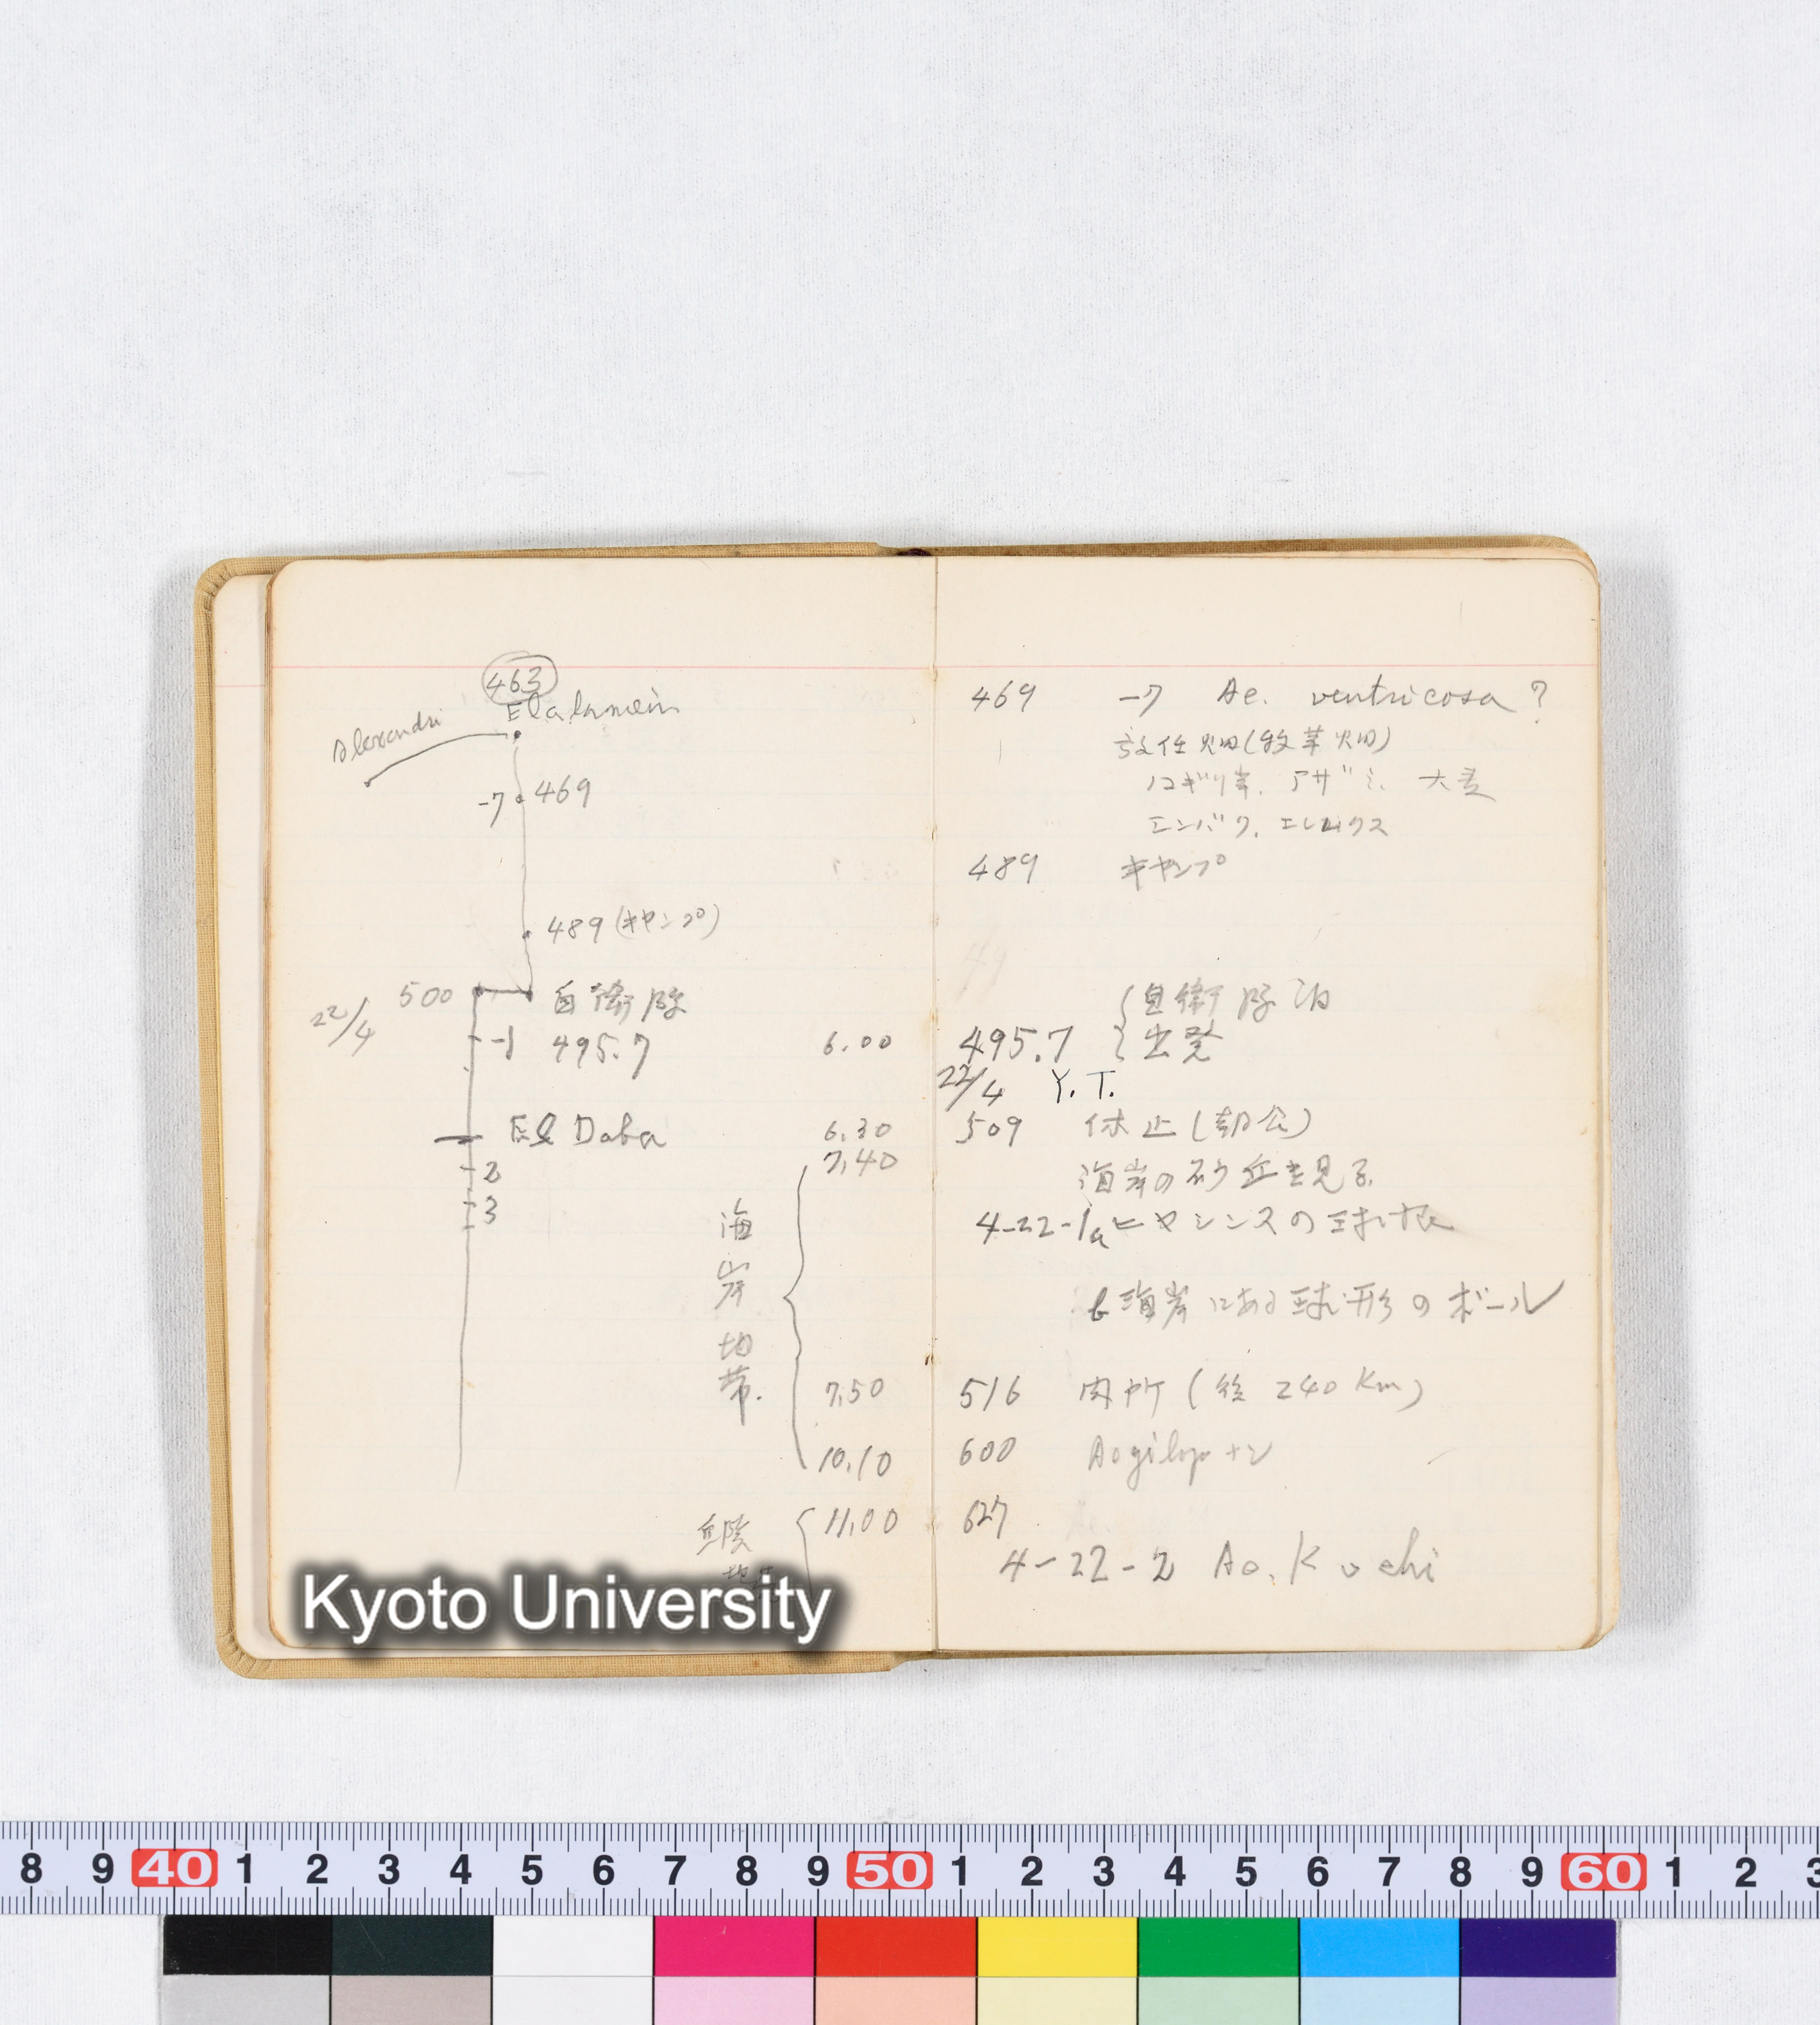 463
Elalamein
Alexandri
-7 469
489 (キャンプ)
500 自衛隊
22/4
-1 495.7
El Daba
2
3
海岸地帯.
6.00
6.30
7.40
7.50
10.10
11.00
丘陵
469 -7 Ae. ventricosa ?
放任畑(牧草畑)
ノコギリ草. アザミ. 大麦
エンバク.
489 キャンプ
自衛隊泊
495.7 出発
22/4 Y. T.
509 休止 (朝食)
海岸の砂丘を見る.
4-22-1a ヒヤシンスの球根
b 海岸にある球形のボール
516 (後 240 Km)
600 Aegilop ナシ
627
4-22-2 Ae. Kochi
Kyoto University
8 9 40 1 2 3 4 5 6 7 8 9 50 1 2 3 4 5 6 7 8 9 60 1 2 3